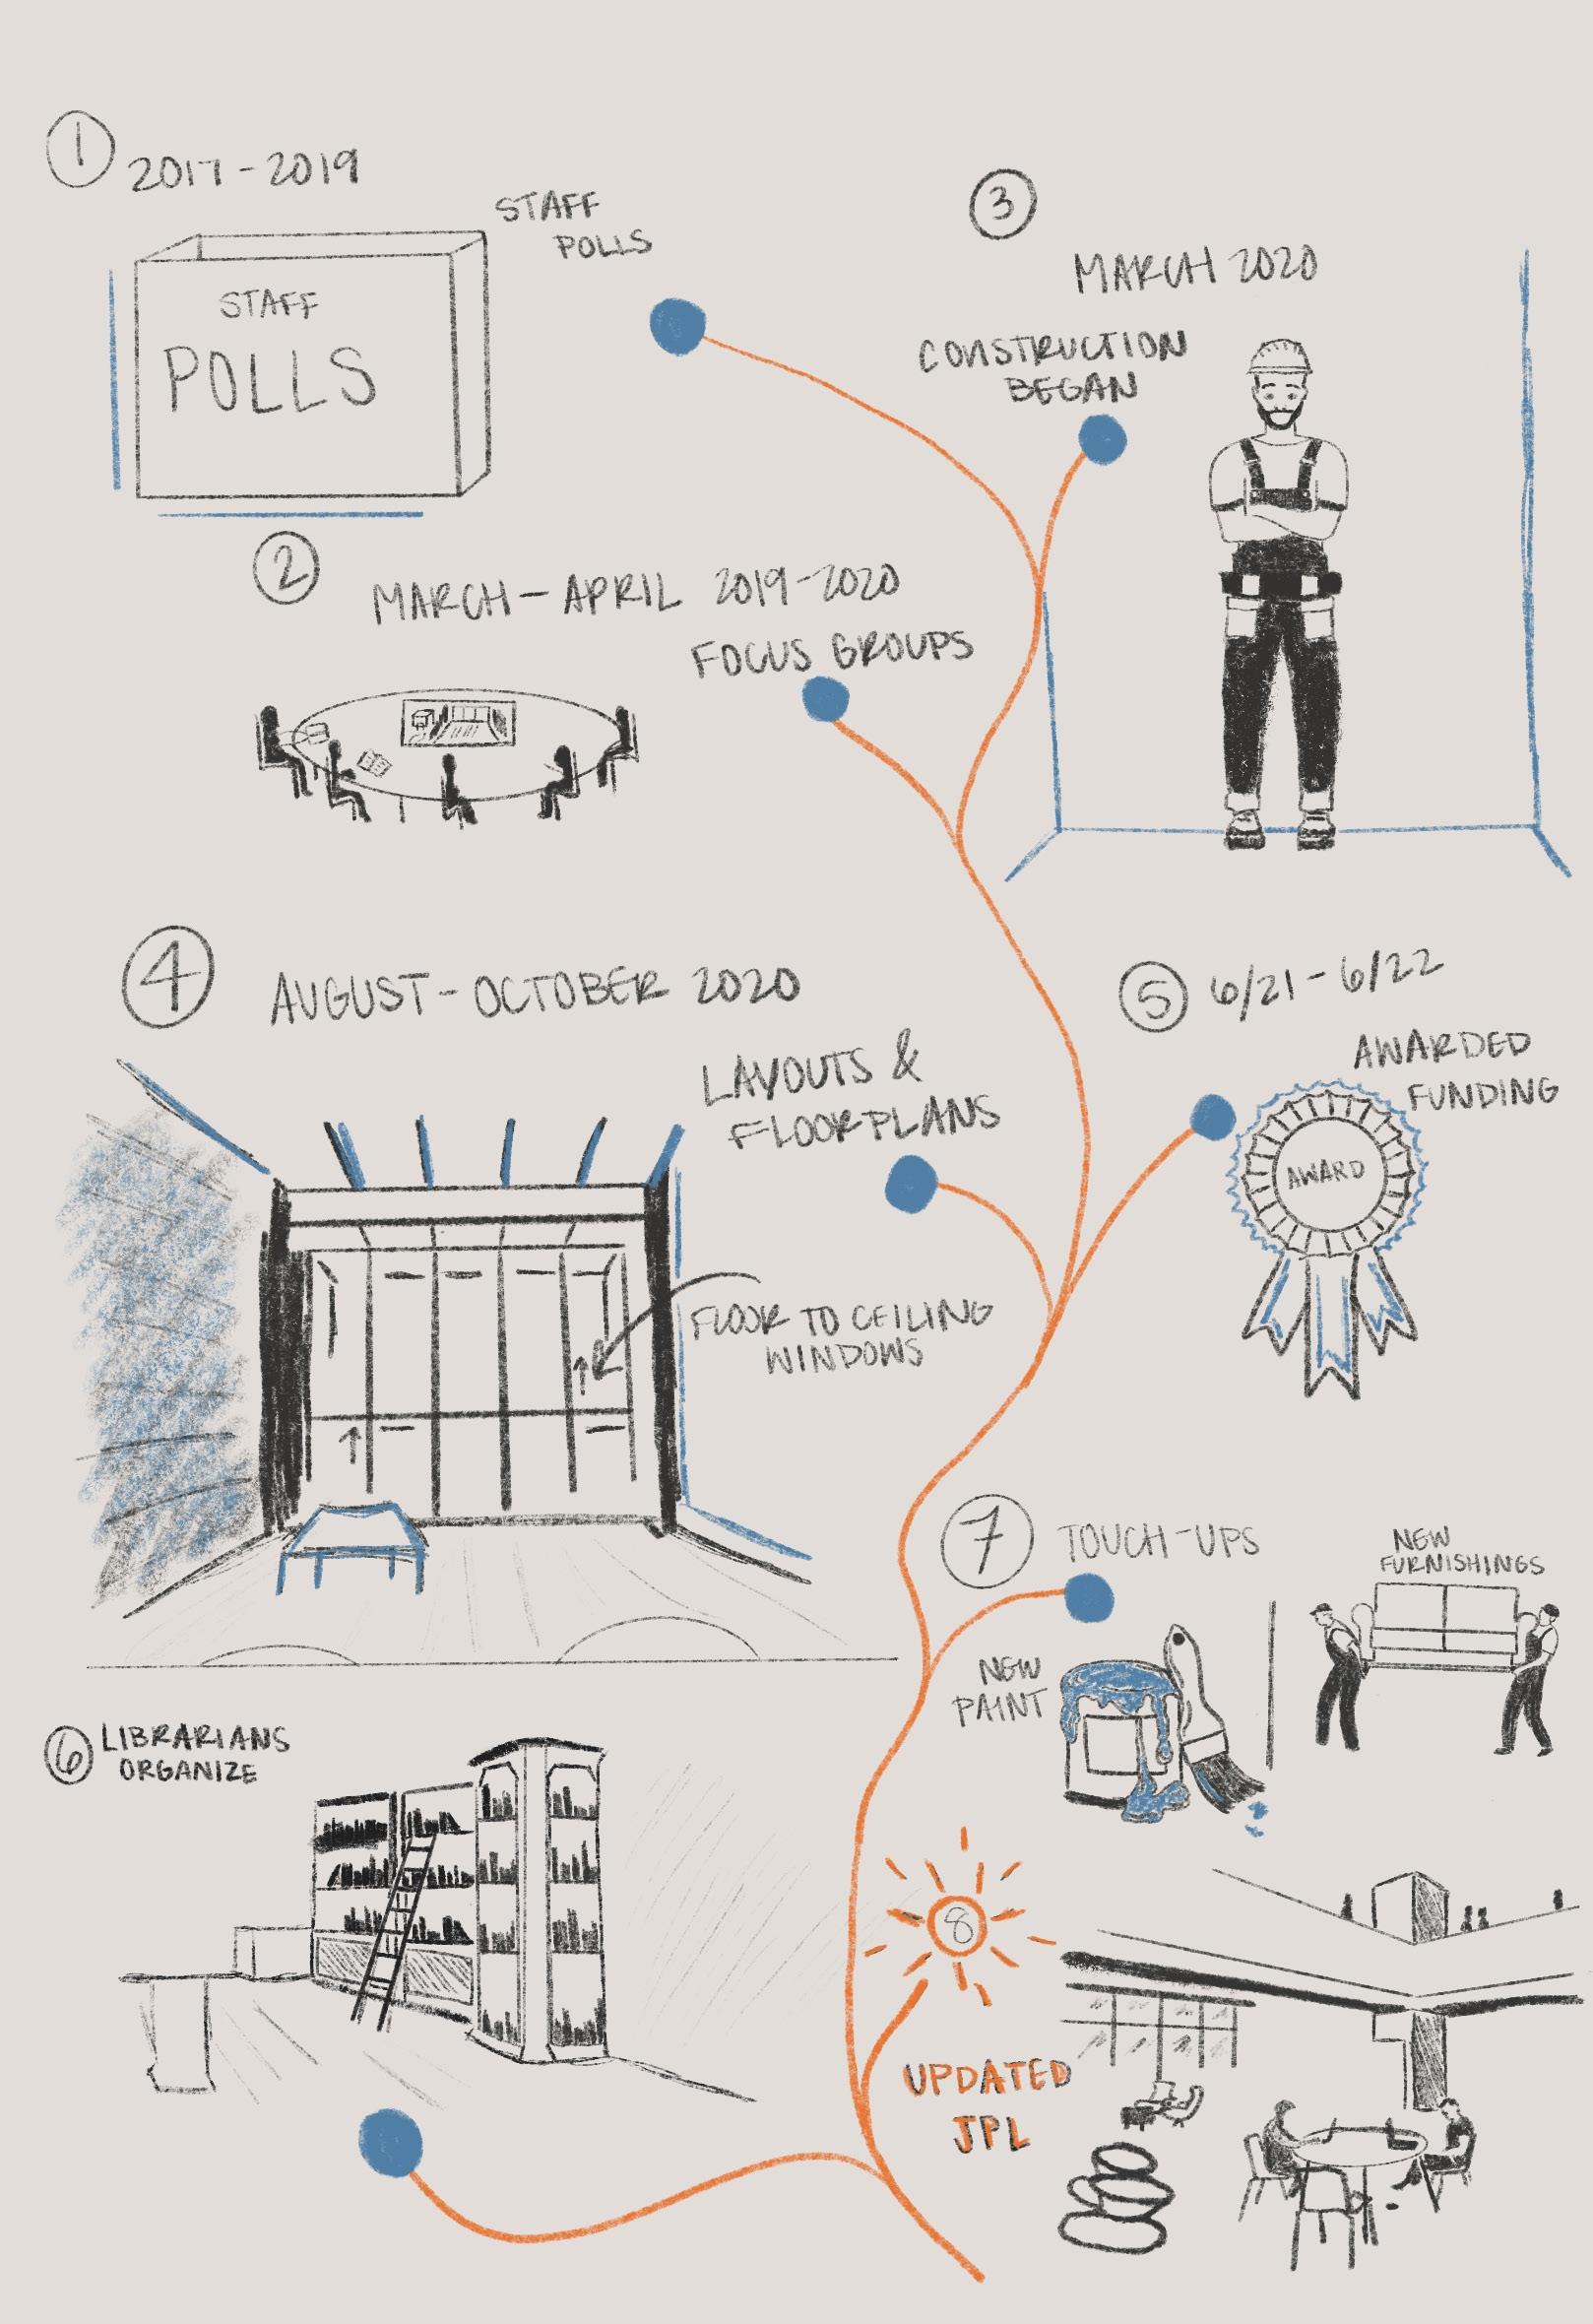 1
2017-2019
STAFF
POLLS
STAFF
POLLS
2
MARCH-APRIL 2019-2020
FOCUS GROUPS
3
MARCH 2020
CONSTRUCTION
BEGAN
4
AUGUST-OCTOBER 2020
LAYOUTS &
FLOORPLANS
FLOOR TO CEILING
WINDOWS
5
6/21-6/22
AWARDED
FUNDING
AWARD
6
LIBRARIANS
ORGANIZE
7
TOUCH-UPS
NEW
FURNISHINGS
NEW
PAINT
8
UPDATED
JPL